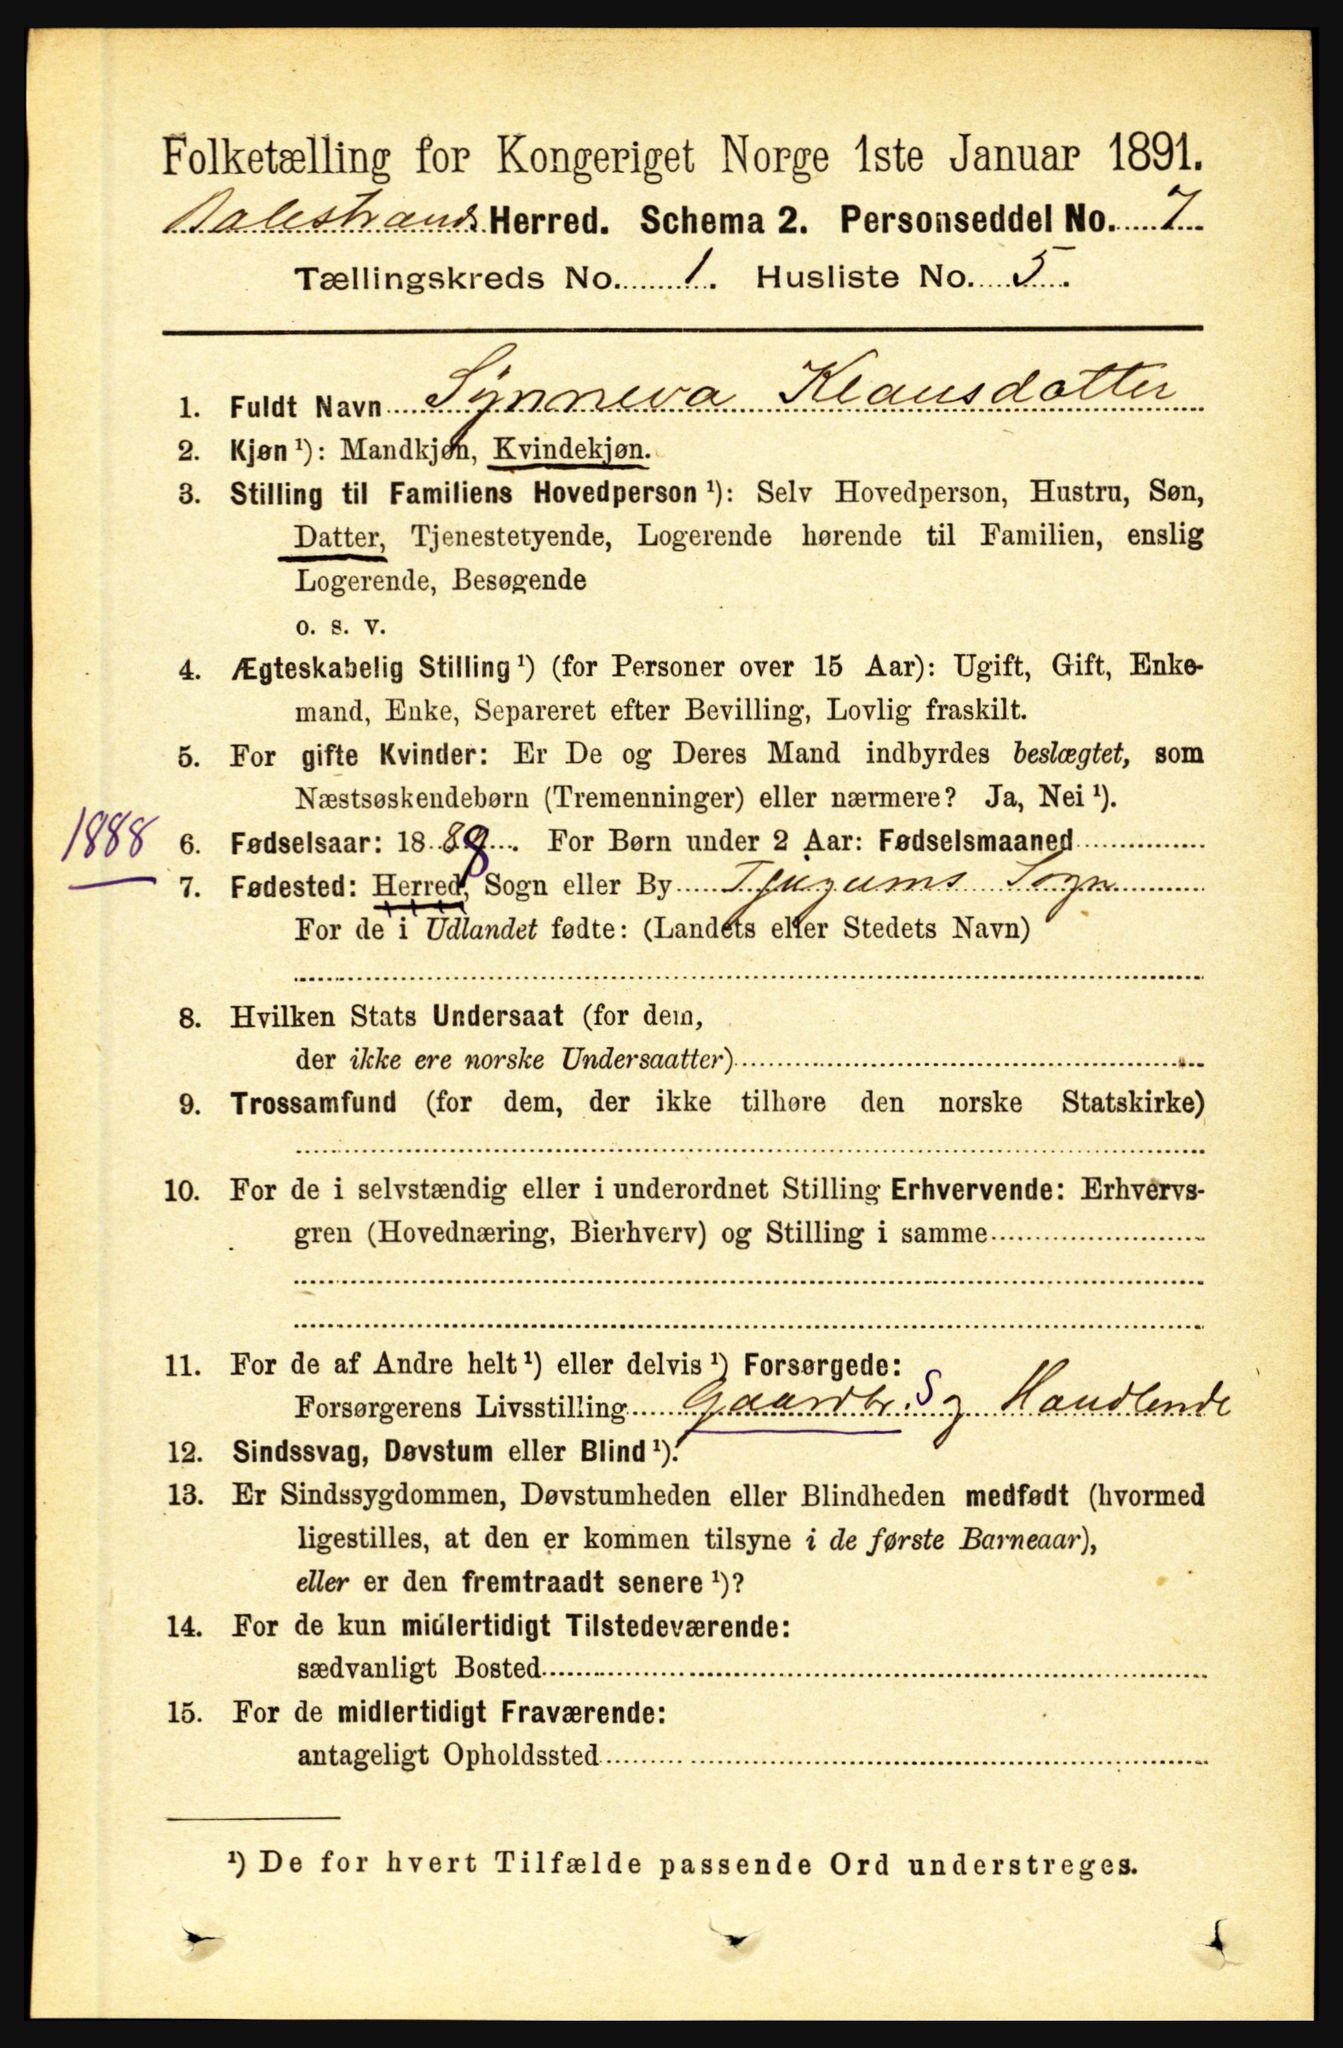 Folketælling for Kongeriget Norge 1ste Januar 1891.
Balestrands Herred. Schema 2. Personseddel No. 7
Tællingskreds No. 1. Husliste No. 5.
1. Fuldt Navn Synneva Klausdatter
2. Kjøn ¹): Mandkjøn, Kvindekjøn.
3. Stilling til Familiens Hovedperson ¹): Selv Hovedperson, Hustru, Søn,
Datter, Tjenestetyende, Logerende hørende til Familien, enslig
Logerende, Besøgende
o. s. v.
4. Ægteskabelig Stilling ¹) (for Personer over 15 Aar): Ugift, Gift, Enke-
mand, Enke, Separeret efter Bevilling, Lovlig fraskilt.
5. For gifte Kvinder: Er De og Deres Mand indbyrdes beslægtet, som
Næstsøskendebørn (Tremenninger) eller nærmere? Ja, Nei ¹).
1888 6. Fødselsaar: 1888. For Børn under 2 Aar: Fødselsmaaned
7. Fødested: Herred, Sogn eller By Tjugums Sogn
For de i Udlandet fødte: (Landets eller Stedets Navn)
8. Hvilken Stats Undersaat (for dem,
der ikke ere norske Undersaatter)
9. Trossamfund (for dem, der ikke tilhøre den norske Statskirke)
10. For de i selvstændig eller i underordnet Stilling Erhvervende: Erhvervs-
gren (Hovednæring, Bierhverv) og Stilling i samme
11. For de af Andre helt ¹) eller delvis ¹) Forsørgede:
Forsørgerens Livsstilling Gaardbr. S og Handlende
12. Sindssvag, Døvstum eller Blind ¹).
13. Er Sindssygdommen, Døvstumheden eller Blindheden medfødt (hvormed
ligestilles, at den er kommen tilsyne i de første Barneaar),
eller er den fremtraadt senere ¹)?
14. For de kun midlertidigt Tilstedeværende:
sædvanligt Bosted
15. For de midlertidigt Fraværende:
antageligt Opholdssted
¹) De for hvert Tilfælde passende Ord understreges.